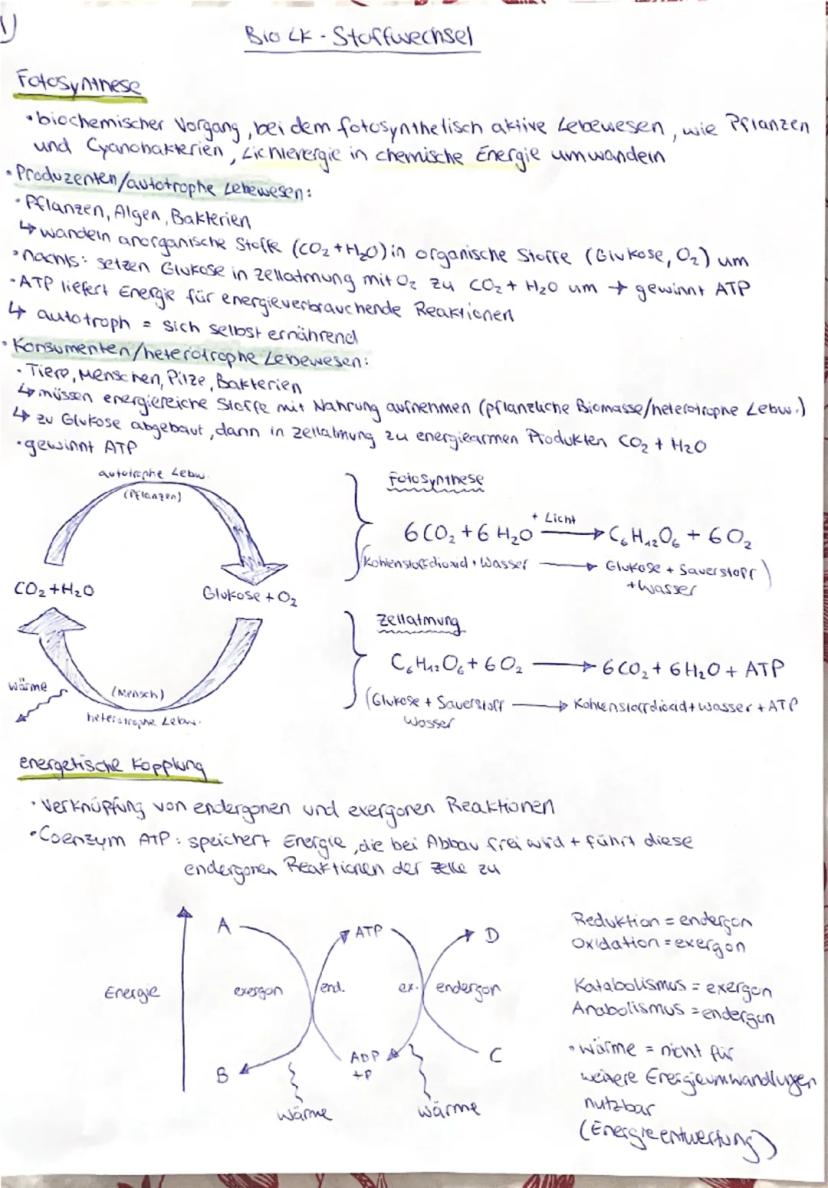 1)
Bio LK - Stoffwechsel
Fotosynthese
• biochemischer Vorgang, bei dem fotosynthetisch aktive Lebewesen, wie Pflanzen
und Cyanobakterien, Lichtenergie in chemische Energie umwandeln
• Produzenten/autotrophe Lebewesen:
• Pflanzen, Algen, Bakterien
↳ wandeln anorganische Stoffe (CO₂ + H₂O) in organische Stoffe (Glukose, O₂) um
• nachts: setzen Glukose in Zellatmung mit O₂ zu CO₂ + H₂O um → gewinnt ATP
• ATP liefert Energie für energieverbrauchende Reaktionen
↳ autotroph = sich selbst ernährend
• Konsumenten/heterotrophe Lebewesen:
• Tiere, Menschen, Pilze, Bakterien
↳ müssen energiereiche Stoffe mit Nahrung aufnehmen (pflanzliche Biomasse/heterotrophe Lebw.)
↳ zu Glukose abgebaut, dann in Zellatmung zu energiearmen Produkten CO₂ + H₂O
• gewinnt ATP
autotrophe Lebw.
(Pflanzen)
CO₂ + H₂O
Glukose + O₂
Wärme
(Mensch)
heterotrophe Lebw.
Fotosynthese
6 CO₂ + 6 H₂O + Licht → C₆H₁₂O₆ + 6 O₂
(Kohenstoffdioxid + Wasser → Glukose + Sauerstoff)
+ Wasser
Zellatmung
C₆H₁₂O₆ + 6 O₂ → 6 CO₂ + 6 H₂O + ATP
(Glukose + Sauerstoff → Kohenstoffdioxid + Wasser + ATP
Wasser
energetische Kopplung
• Verknüpfung von endergonen und exergonen Reaktionen
• Coenzym ATP: speichert Energie, die bei Abbau frei wird + führt diese
endergonen Reaktionen der Zelle zu
Energie
A
ATP
D
exergon
end.
ex.
endergon
B
ADP
+P
C
Wärme
Wärme
Reduktion = endergon
Oxidation = exergon
Katabolismus = exergon
Anabolismus = endergon
• Wärme = nicht für
weitere Energieumwandlungen
nutzbar
(Energieentwertung)